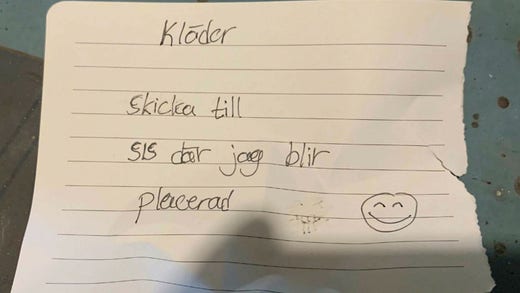 Kläder
skicka till
SiS där jag blir
placerad